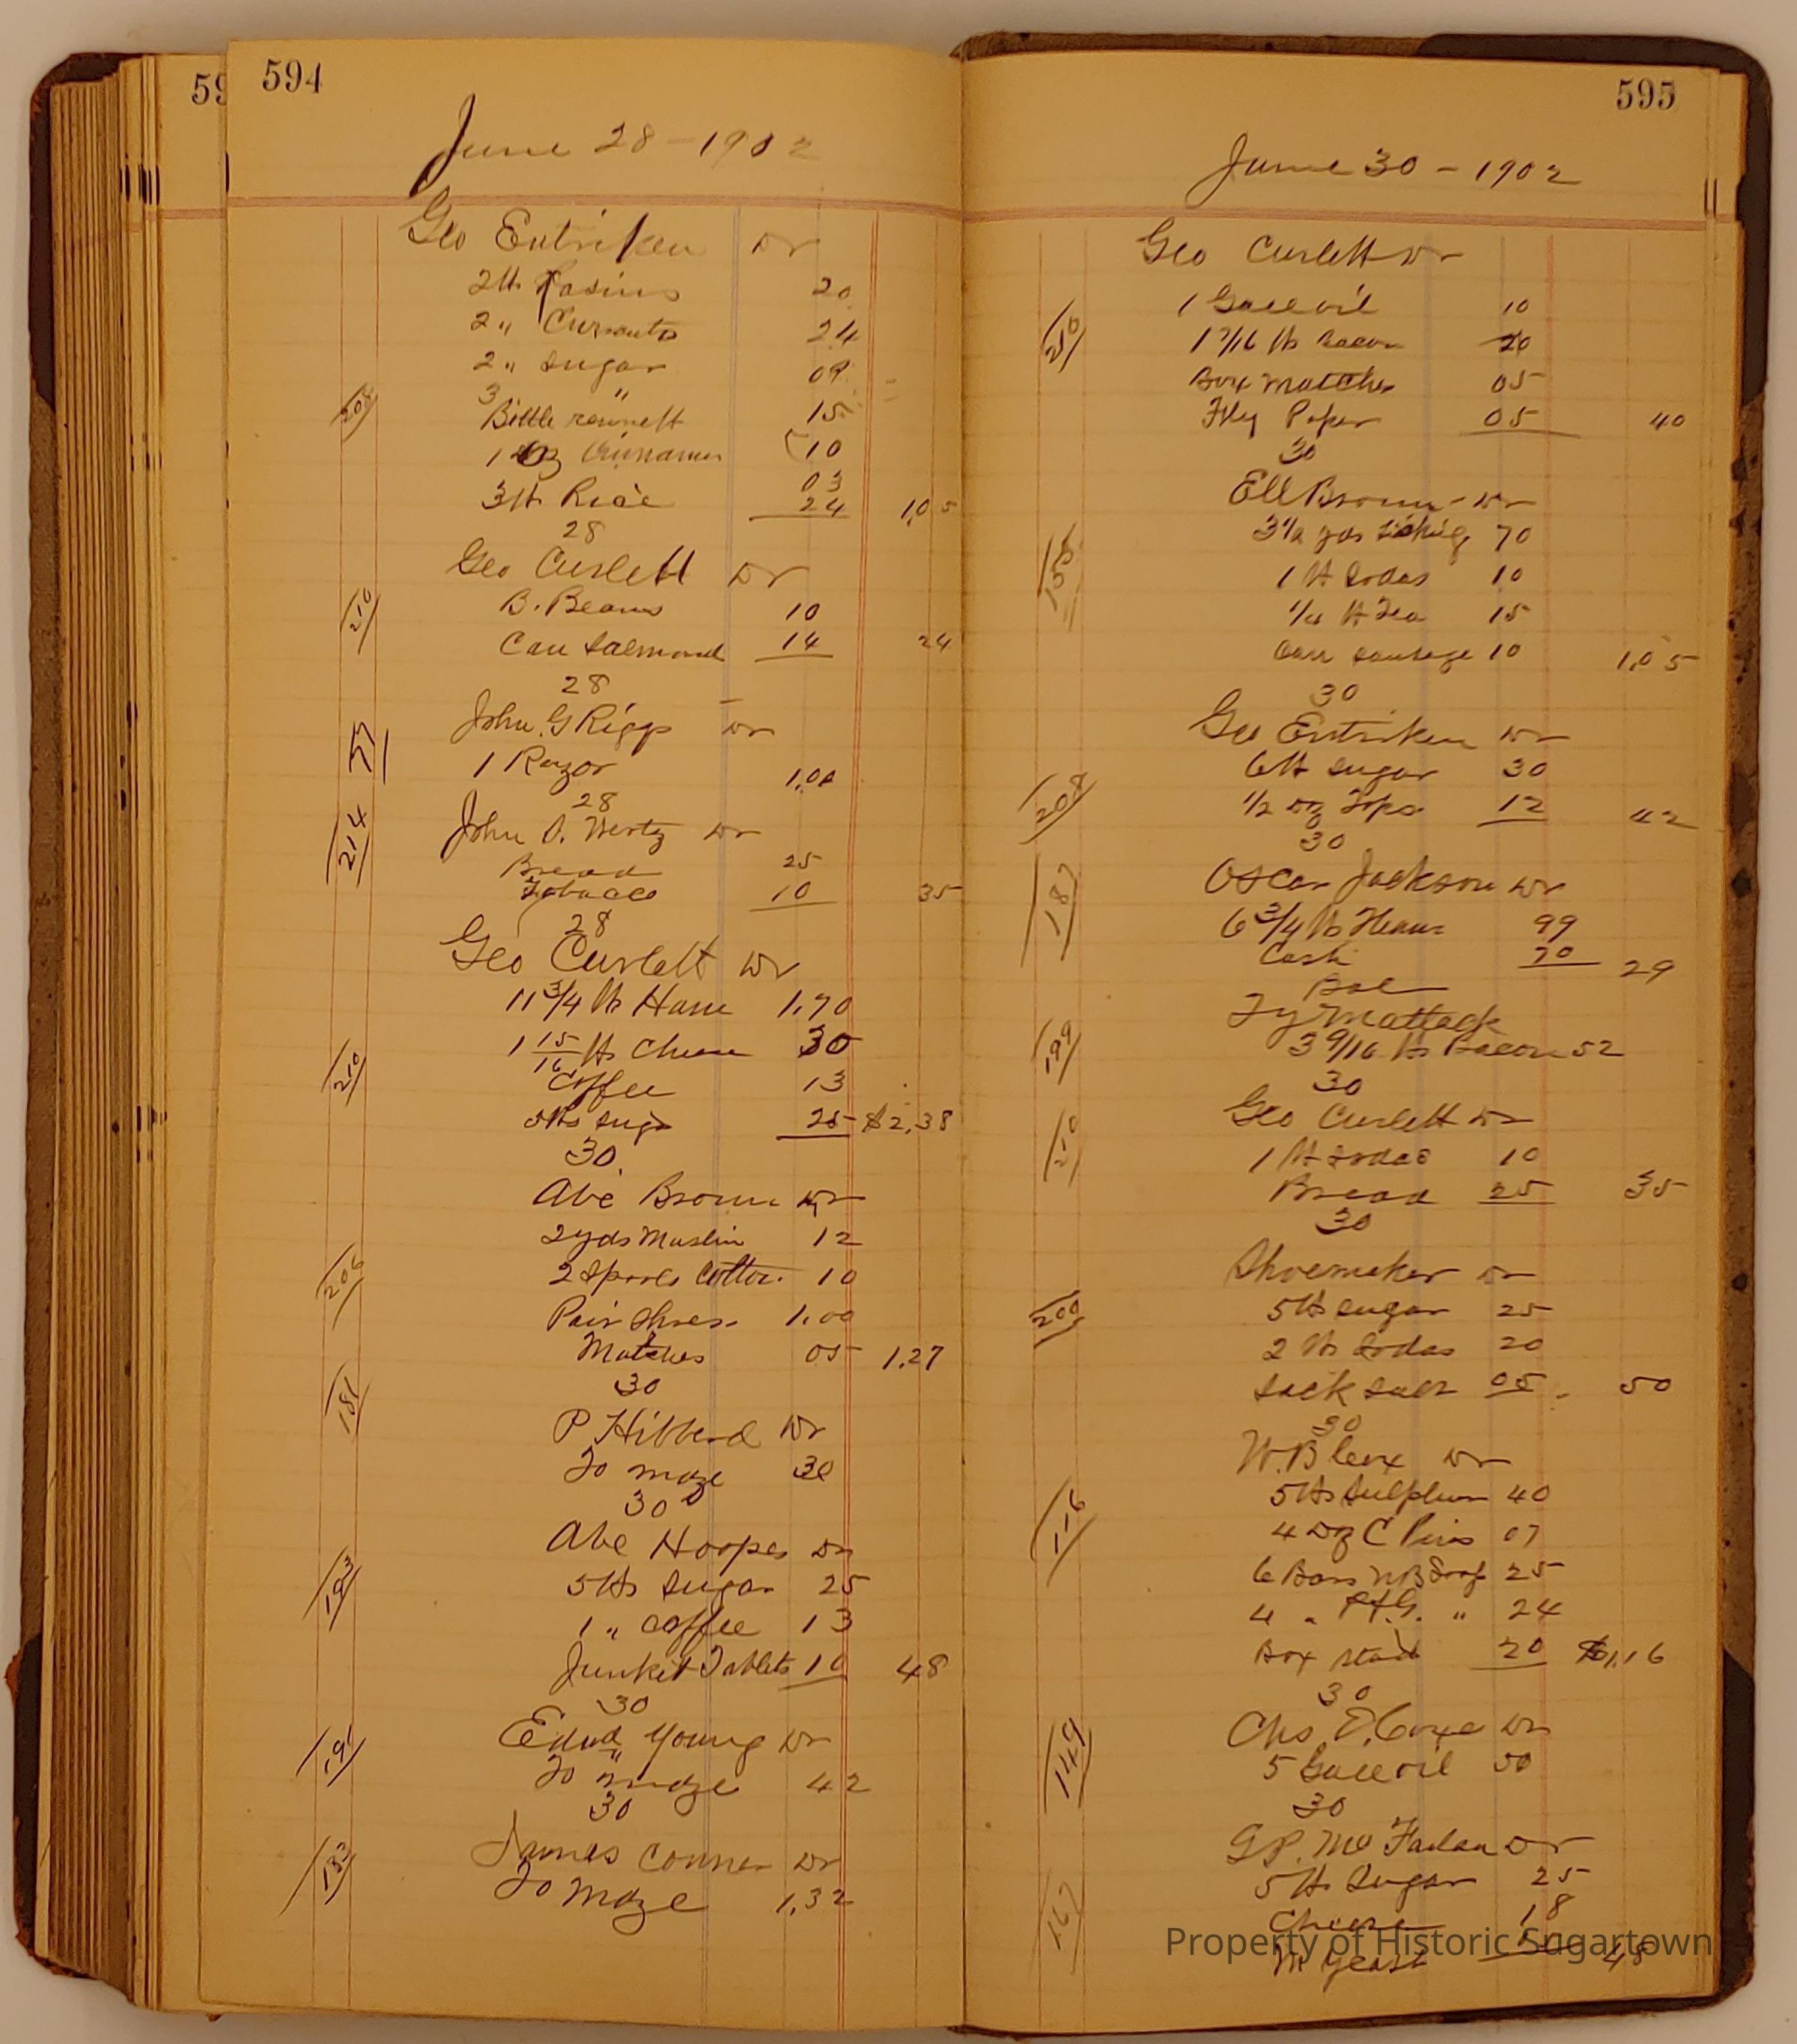 59
594
June 28 - 1902
Geo Entriken Dr
2 lb Rasins 20
2 " Currants 24
2 " Sugar 09
3 "
208
Bottle rennett 15
1 oz Cinnamon 10
03
3 lb Rice 24 1,05
28
Geo Curlett Dr
210
B. Beans 10
Can Salmond 14 24
28
John G Riggs Dr
57
1 Razor 1,00
28
214
John O. Wertz Dr
Bread 25
Tobacco 10 35
28
Geo Curlett Dr
11 3/4 lb Ham 1.70
1 15/16 lb Cheese 30
210
Coffee 13
5 lbs Sugr 25 $2,38
30
Abe Brown Dr
2 yds Muslin 12
206
2 Spools Cotton 10
Pair Shoes 1.00
Matches 05 1,27
30
181
P Hibberd Dr
To mdze 30
30
Abe Hoopes Dr
193
5 lbs Sugar 25
1 " Coffee 13
Junkit Tablets 10 48
30
191
Edwd Young Dr
To mdze 42
30
183
James Conner Dr
To Mdze 1,32
595
June 30 - 1902
Geo Curlett Dr
1 Gall oil 10
210
1 7/16 lb Bacon 20
Box Matches 05
Fly Paper 05 40
30
Ell Brown Dr
155
3 1/2 yds Ticking 70
1 lb Sodas 10
1/4 lb Tea 15
Can Sausage 10 1,05
30
Geo Entriken Dr
6 lb Sugar 30
208
1/2 Dz Tops 12 42
30
187
Oscar Jackson Dr
6 3/4 lb Ham 99
Cash 70 29
Bal
Ty Mattack
199
3 9/16 lb Bacon 52
30
Geo Curlett Dr
210
1 lb Sodas 10
Bread 25 35
30
Shoemaker Dr
200
5 lb Sugar 25
2 lb Sodas 20
Sack Salt 05 50
30
W. B Cox Dr
116
5 lbs Sulphur 40
4 Dz C Pins 07
6 Bars NB Soap 25
4 " P&G. " 24
Box Starch 20 $1,16
30
Chs E. Coxe Dr
149
5 Gall oil 50
30
G P. Mc Farlan Dr
167
5 lbs Sugar 25
Cheese 18
Yeast 48
Property of Historic Sugartown